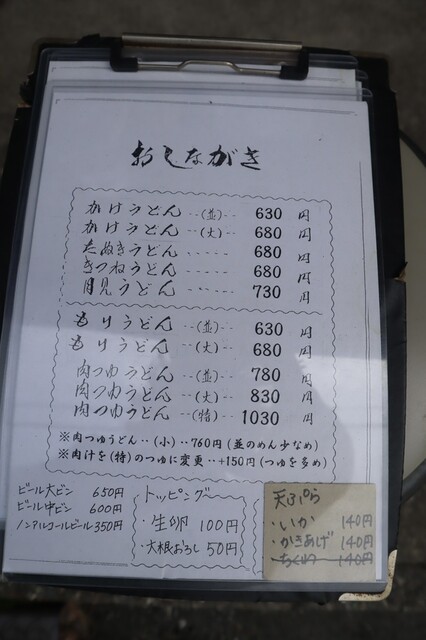 おしながき
かけうどん‥(並)‥ 630 円
かけうどん‥(大)‥ 680 円
たぬきうどん ‥‥‥ 680 円
きつねうどん ‥‥‥ 680 円
月見うどん ‥‥‥ 730 円
もりうどん ‥(並)‥ 630 円
もりうどん ‥(大)‥ 680 円
肉つゆうどん ‥(並) 780 円
肉つゆうどん ‥(大) 830 円
肉つゆうどん ‥(特) 1030 円
※肉つゆうどん‥(小)‥760円(並のめん少なめ)
※肉汁を(特)のつゆに変更‥+150円(つゆを多め)
ビール大ビン 650円
ビール中ビン 600円
ノンアルコールビール350円
トッピング
・生卵 100円
・大根おろし 50円
天ぷら
・いか 140円
・かきあげ 140円
・ちくわ 140円